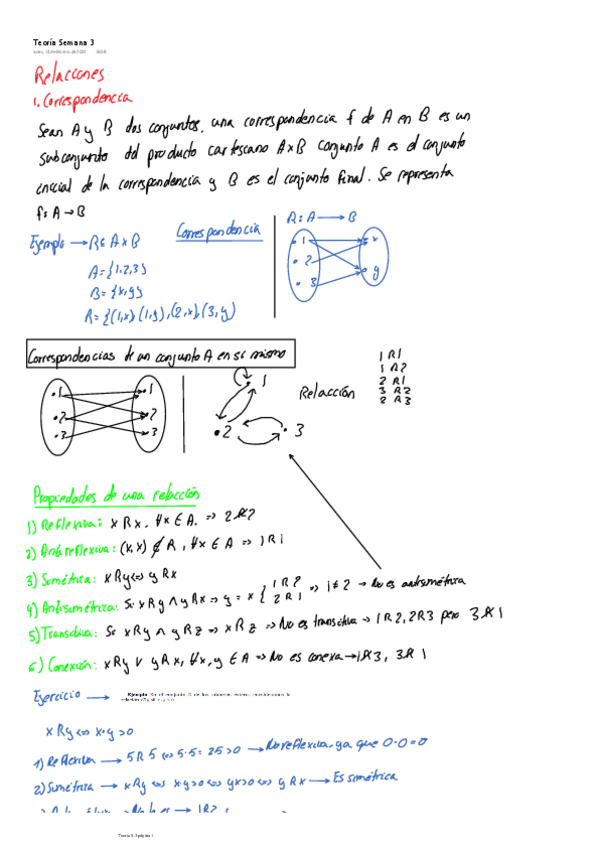 Teoría Semana 3
Relacciones
1. Correspondencia
Sean A y B dos conjuntos, una correspondencia f de A en B es un
subconjunto del producto cartesiano A×B conjunto A es el conjunto
inicial de la correspondencia y B es el conjunto final. Se representa
f: A → B
Ejemplo → R ⊆ A × B
A = {1,2,3}
B = {x,y}
R = {(1,x),(1,y),(2,x),(3,y)
Correspondencia
R: A → B
1
2
3
x
y
Correspondencias de un conjunto A en si mismo
1
2
3
1
2
3
1
2
3
Relacción
1 R 1
1 R 2
2 R 1
3 R 2
2 R 3
Propiedades de una relacción
1) Reflexiva: x R x, ∀x ∈ A. ⇒ 2 R̸ 2
2) Antireflexiva: (x,x) ∉ R, ∀x ∈ A ⇒ 1 R 1
3) Simétrica: x R y ⇔ y R x
4) Antisimétrica: Si x R y ∧ y R x ⇒ y = x { 1 R 2 2 R 1 ⇒ 1 ≠ 2 → No es antisimétrica
5) Transitiva: Si x R y ∧ y R z ⇒ x R z ⇒ No es transitiva → 1 R 2, 2 R 3 pero 3 R̸ 1
6) Conexión: x R y ∨ y R x, ∀x,y ∈ A ⇒ No es conexa → 1 R̸ 3, 3 R̸ 1
Ejercicio →
Ejemplo
x R y ⇔ x·y > 0
1) Reflexiva → 5 R 5 ⇔ 5·5 = 25 > 0 → No reflexiva, ya que 0·0 = 0
2) Simétrica → x R y ⇔ x·y > 0 ⇔ y·x > 0 ⇔ y R x → Es simétrica